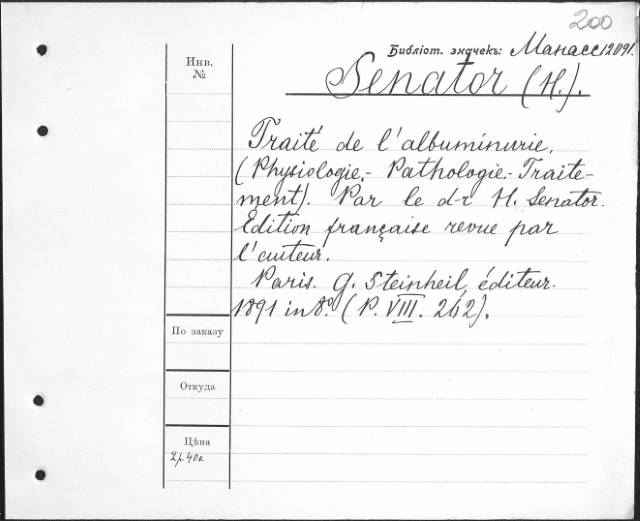 200
Библіот. значекъ: Манасс 12091.
Инв.
№
Senator (H.).
Traité de l'albuminurie.
(Physiologie.- Pathologie.- Traite-
ment). Par le d-r H. Senator.
Édition française revue par
l'auteur.
Paris. G. Steinheil, éditeur.
1891 in 8º. (P. VIII. 242).
По заказу
Откуда
Цѣна
2р. 40к